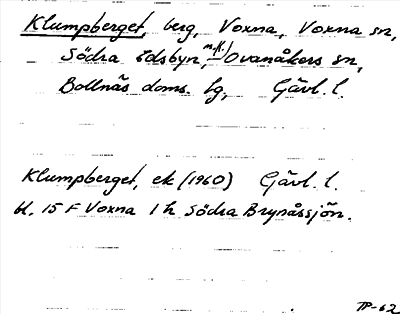 Klumpberget, berg, Voxna, Voxna sn,
Södra Edsbyn, m.fl. Ovanåkers sn,
Bollnäs doms. fg, Gävl. l.
Klumpberget, ek (1960) Gävl. l.
bl. 15 F Voxna 1 h Södra Brynåssjön.
TP-62